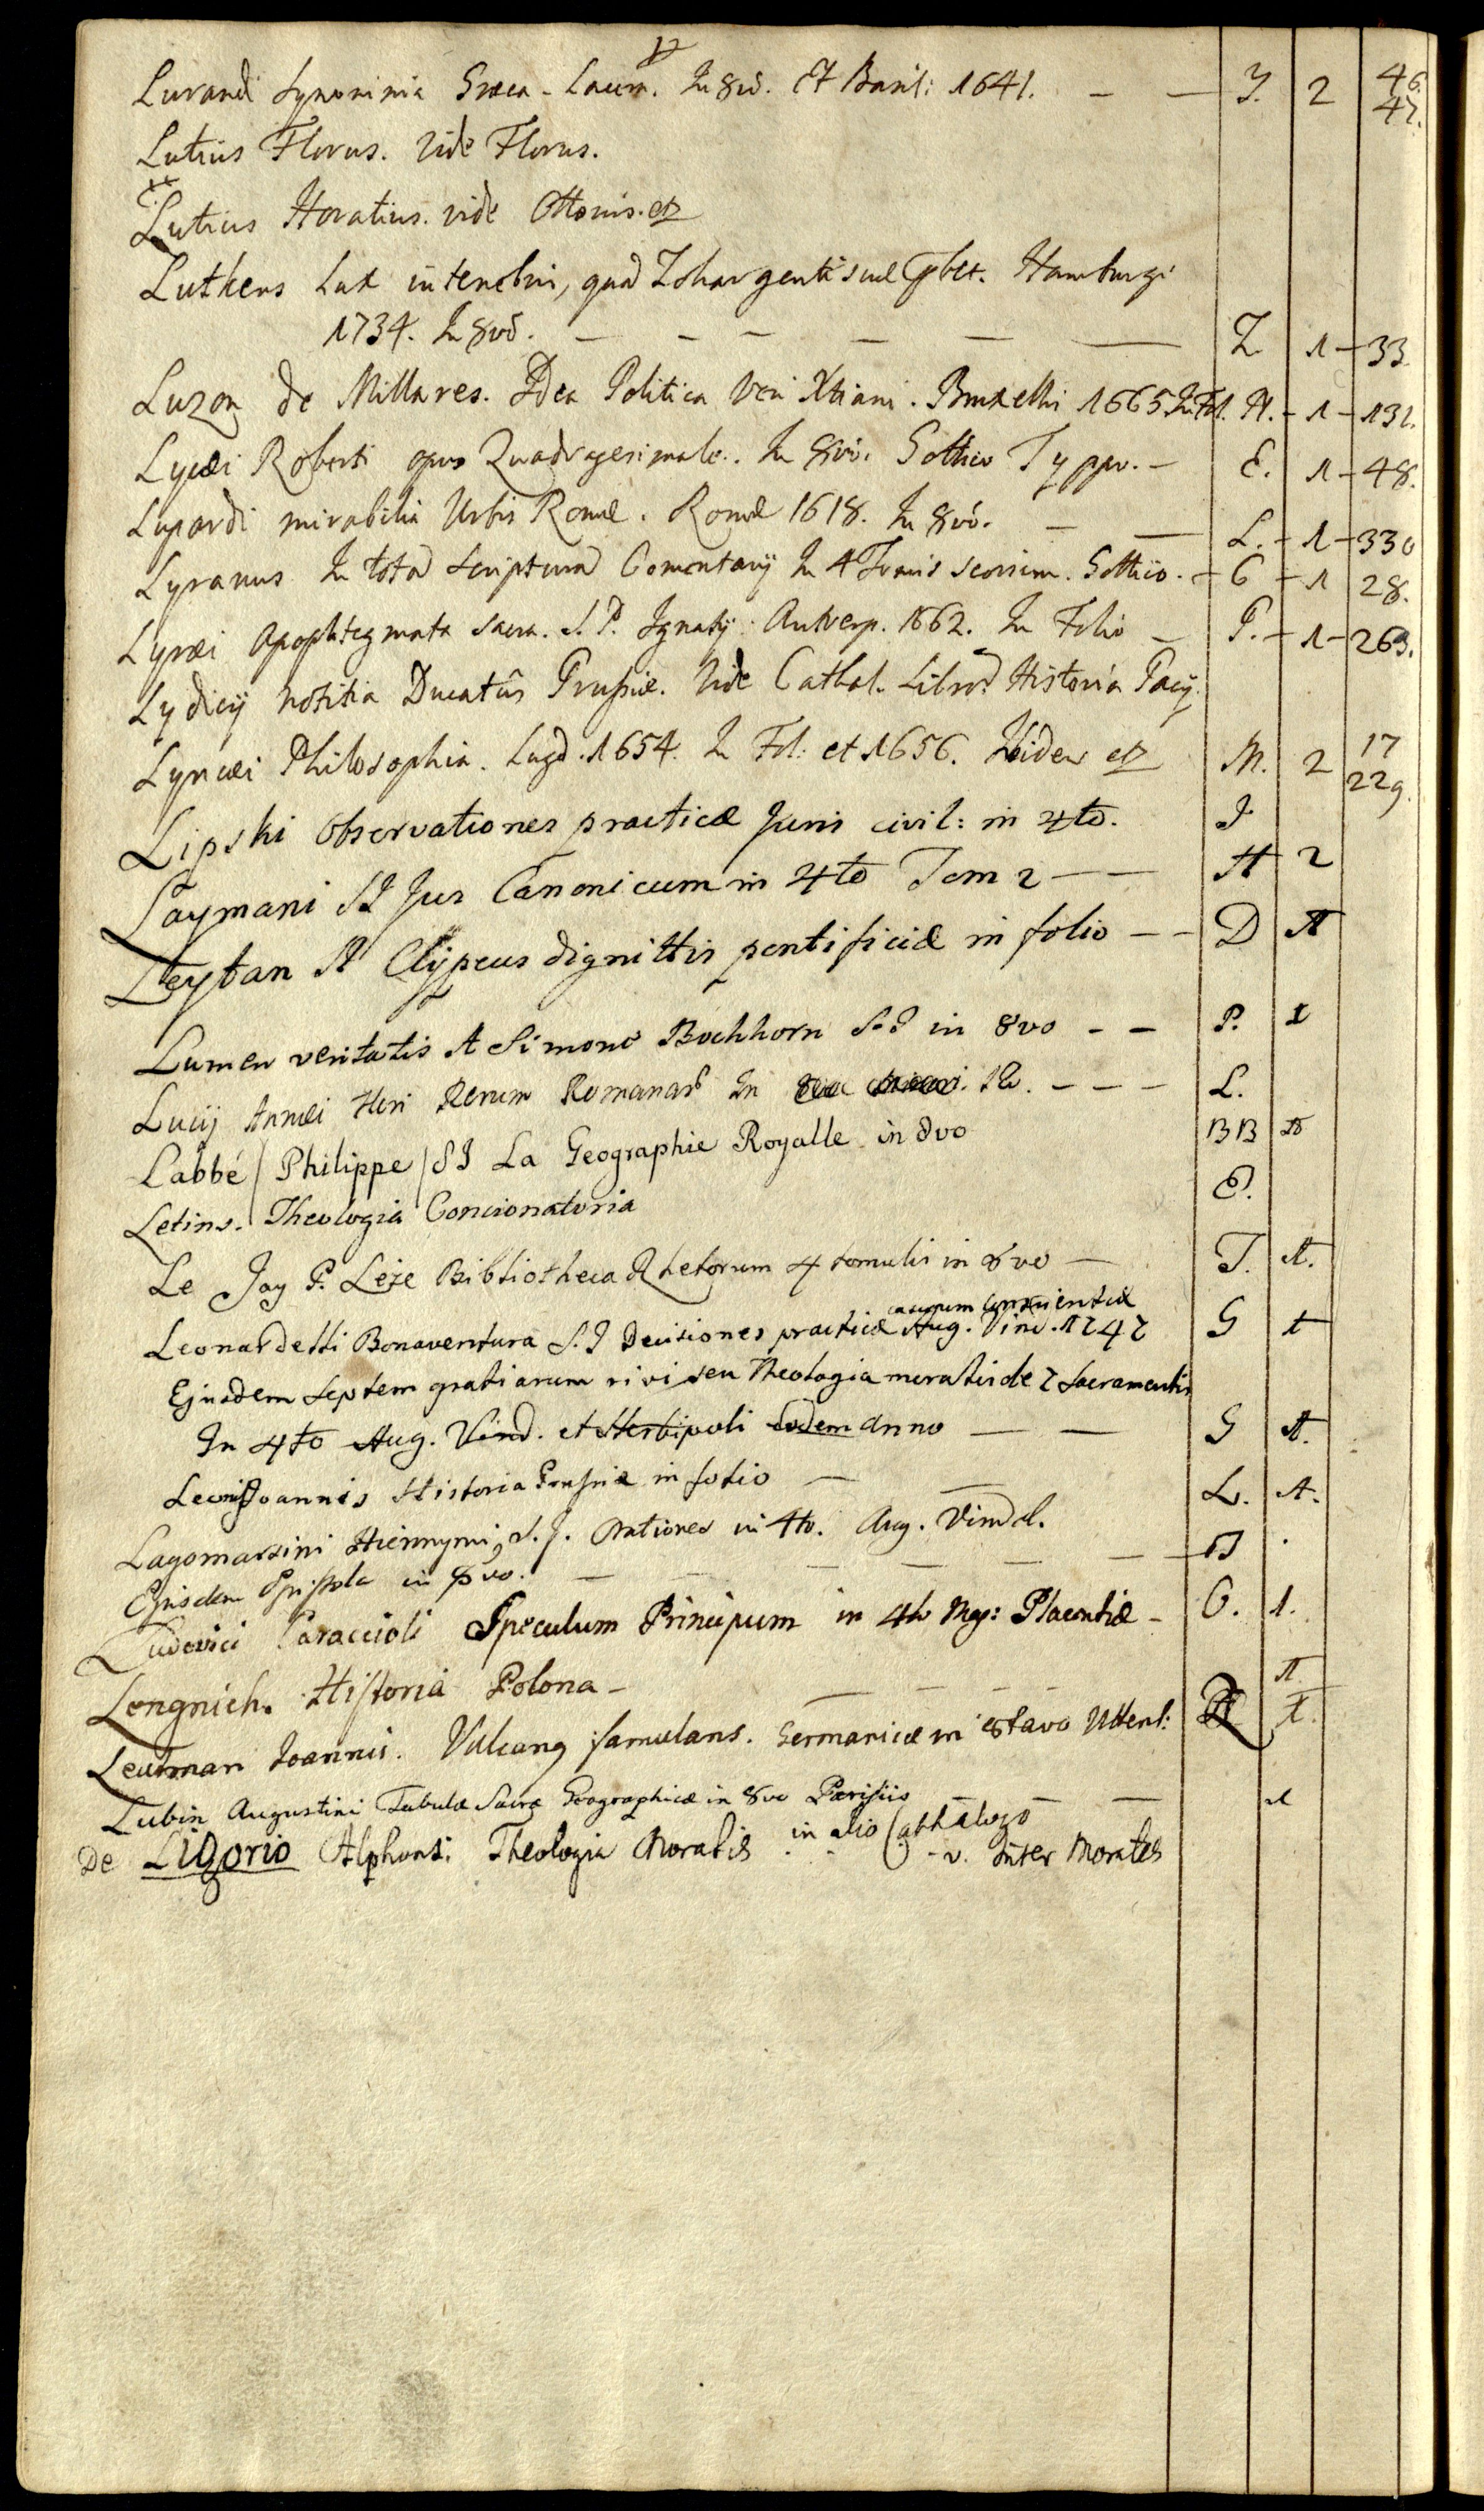 Lurandi Synonimia Græca - Latina. In 8vo. Et Basil: 1641. — — I. 2 46. 47.
Lutius Florus. Vide Florus.
Lutius Horatius. vide Ottonis. et
Luthens Lux in tenebris, quad Zohar genti suæ præbet. Hamburgi
1734. In 8vo. — — — — — — Z 1 - 33
Luzon de Millares. Idea Politica Veri Xtiani. Bruxellis 1665 In Fol. N. - 1 - 131.
Lycæi Roberti opus Quadragesimale. In 8vo. Gothico Typpo. — E. 1 - 48.
Lupardi mirabilia Urbis Romæ. Romæ 1618. In 8vo. — — L. - 1 - 330
Lyranus In tota Scriptura Comentarij In 4 Tomis seorsim. Gothico. - C - 1 28.
Lyræi Apophtegmata sacra. S. P. Ignatij Antverp. 1662. In Folio — P. - 1 - 263.
Lydicij Notitia Ducatûs Prussiæ. Vide Cathal. Libror Historia
Lyncæi Philosophia. Lugd. 1654. In Fol: et 1656. Ibidem et M. 2 17 229.
Lipski Observationes practicæ Juris civil: in 4to. J
Laymani SI Jus Canonicum in 4to Tom 2 — — H 2
Leytan A Clypeus dignittis pontificiæ in folio — — D A
Lumen veritatis A Simone Bochhorn S. J in 8vo - - P. 1
Lucij Annæi Flori Rerum Romanar In 12. - - - L.
Labbé / Philippe / SI La Geographie Royalle in 8vo BB
Letins. Theologia Concionatoria E.
Le Jay P. Leze Bibliotheca Rhetorum 4 tomulis in 8vo — T. A.
casuum conscientiæ
Leonardelli Bonaventura S. J Decisiones practicæ Aug. Vind. 1747 G t
Ejusdem Septem gratiarum rivi seu Theologia moralis de 7 Sacramentis
In 4to Aug. Vind. et Herbipoli eodem anno — — G A.
Leonis Joannis Historia Prussiæ in folio — — L. A.
Lagomarsini Hieronymi, S. J. Orationes in 4to. Aug. Vindel.
Ejusdem Epistola in 8vo. — — — — — B
Ludovici Caraccioli Speculum Principum in 4to Maj: Placentiæ - O. 1.
Lengnich. Historia Polona - — — — A
Leutman Joannis. Vulcang famulans. Germanicæ in octavo Uttenb: 1.
Lubin Augustini Tabulæ Sacræ Geographicæ in 8vo Parisiis — — —
De Ligorio Alphonsi Theologia Moralis . . in alio Cathalogo
- v. inter Morales